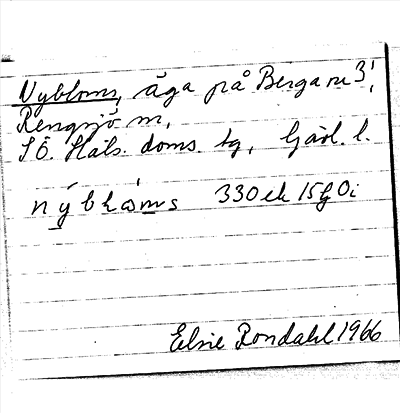 Nybloms, äga på Berga nr 3,
Rengsjö sn,
SÖ. Häls. doms. tg, Gävl. l.
nybloms 330 ek 15g Oi
Elsie Rondahl 1966